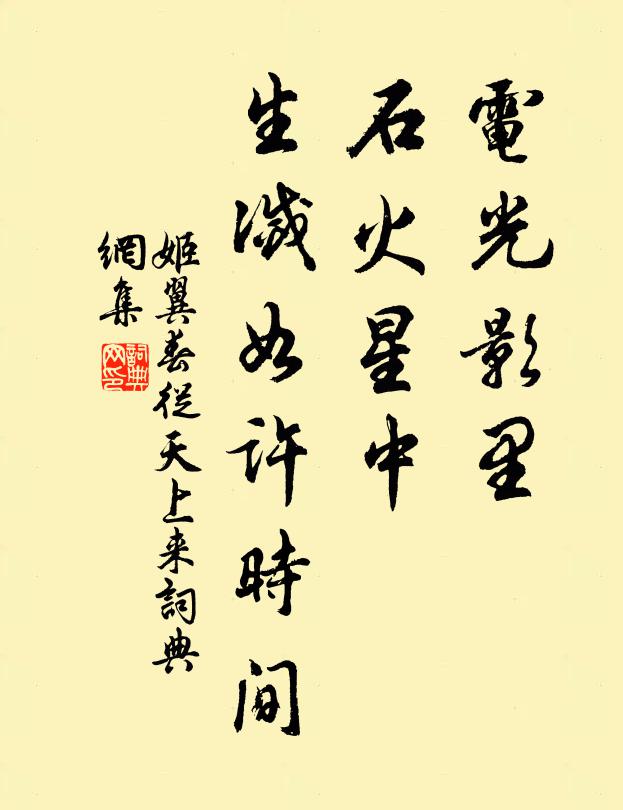 電光影里
石火星中
生滅如许時间
姬翼春從天上来詞典
網集
詞典
网印